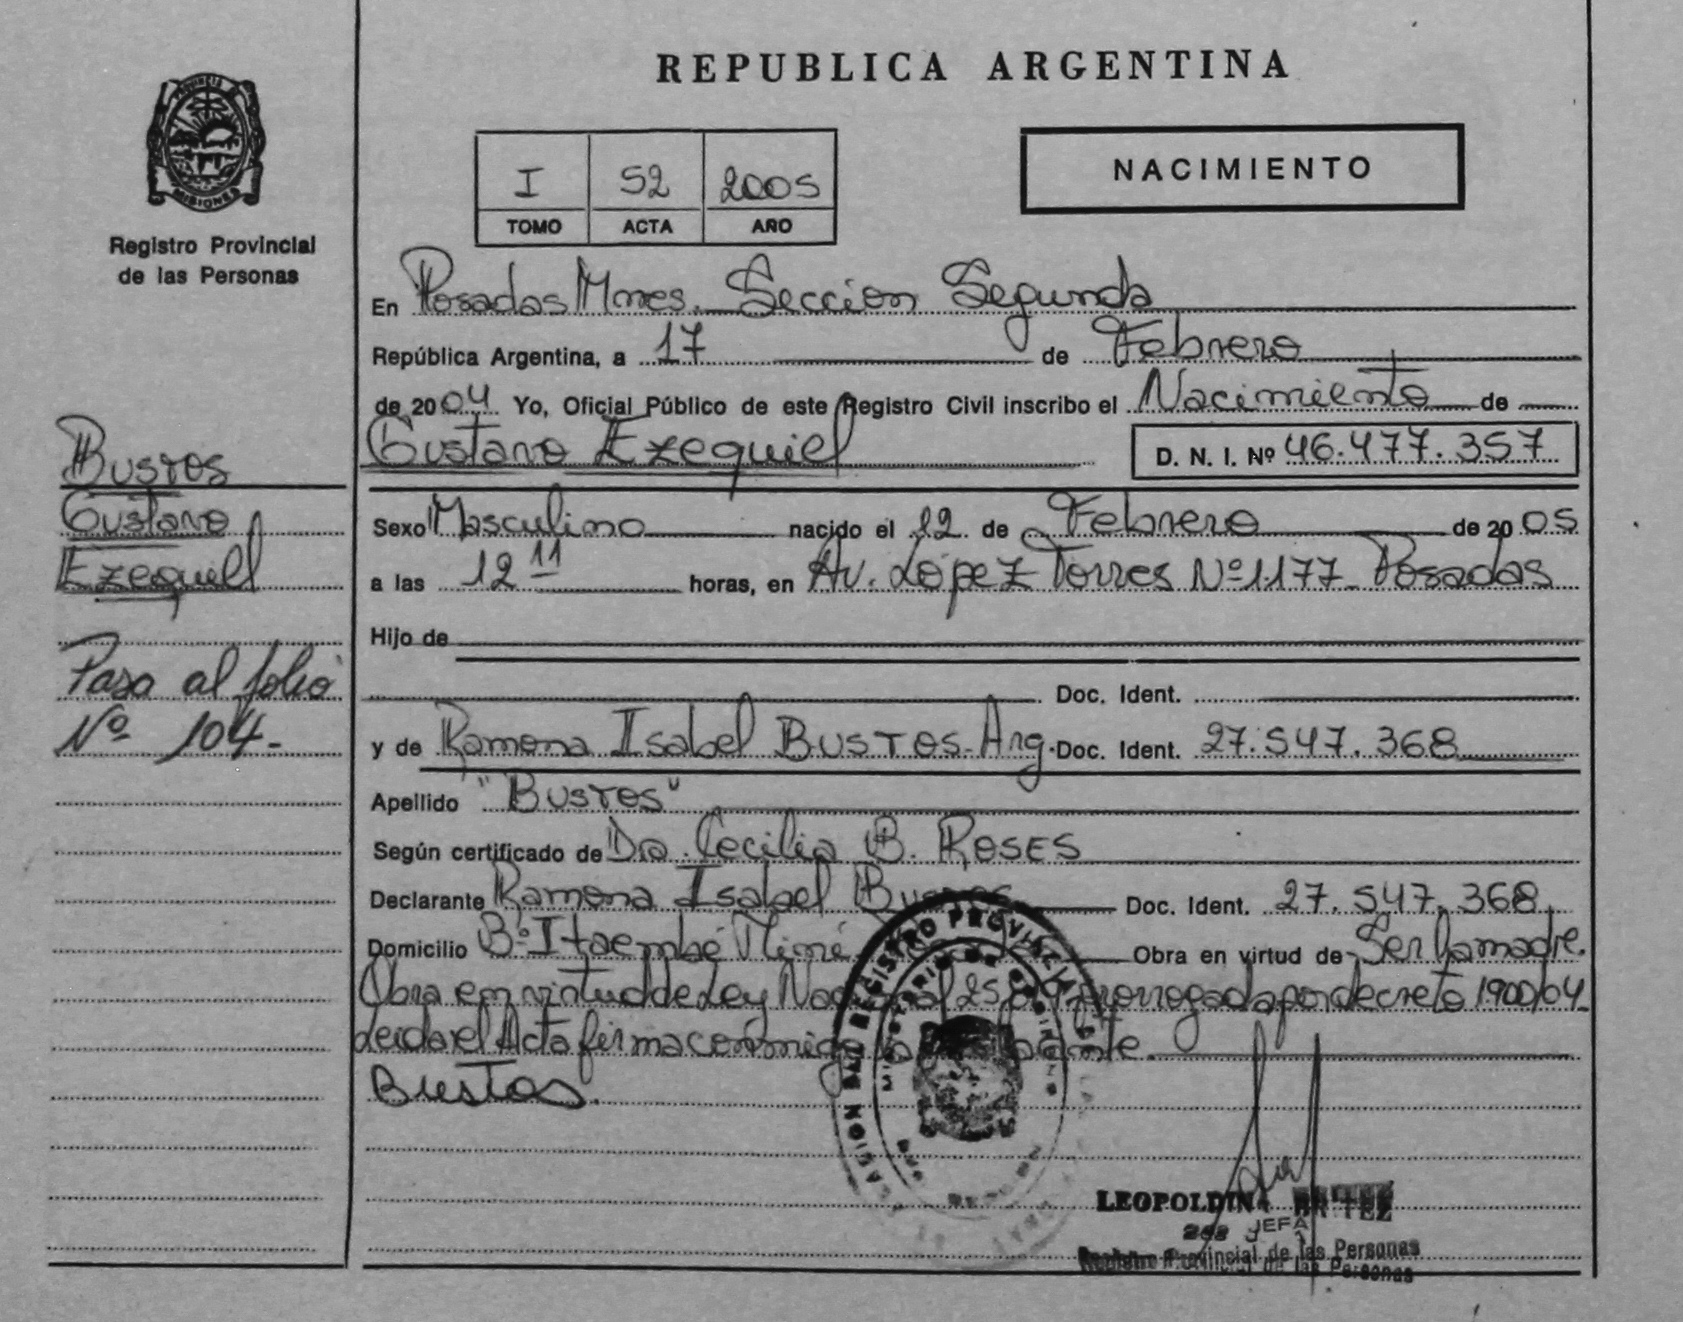 REPUBLICA ARGENTINA
PROVINCIA
MISIONES
Registro Provincial
de las Personas
I 52 2005
TOMO ACTA AÑO
NACIMIENTO
En Posadas Mnes. Seccion Segunda
República Argentina, a 17 de Febrero
de 2004 Yo, Oficial Público de este Registro Civil inscribo el Nacimiento de
Gustavo Ezequiel
D. N. I. Nº 46.477.357
Bustos
Gustavo
Ezequiel
Paso al folio
Nº 104-
Sexo Masculino nacido el 12 de Febrero de 2005
a las 12 11 horas, en Av. López Torres Nº 1177 - Posadas
Hijo de
Doc. Ident.
y de Ramona Isabel BUSTOS-Arg. Doc. Ident. 27.547.368
Apellido "Bustos"
Según certificado de Dra. Cecilia B. ROSES
Declarante Ramona Isabel Bustos Doc. Ident. 27.547.368
Domicilio Bº Itaembé Miní Obra en virtud de Ser la madre.
Obra en virtud de Ley Nacional prorrogada por decreto 1900/04-
Leida el Acta firma conmigo la
Bustos.
LEOPOLDINA
JEFA
Registro Provincial de las Personas